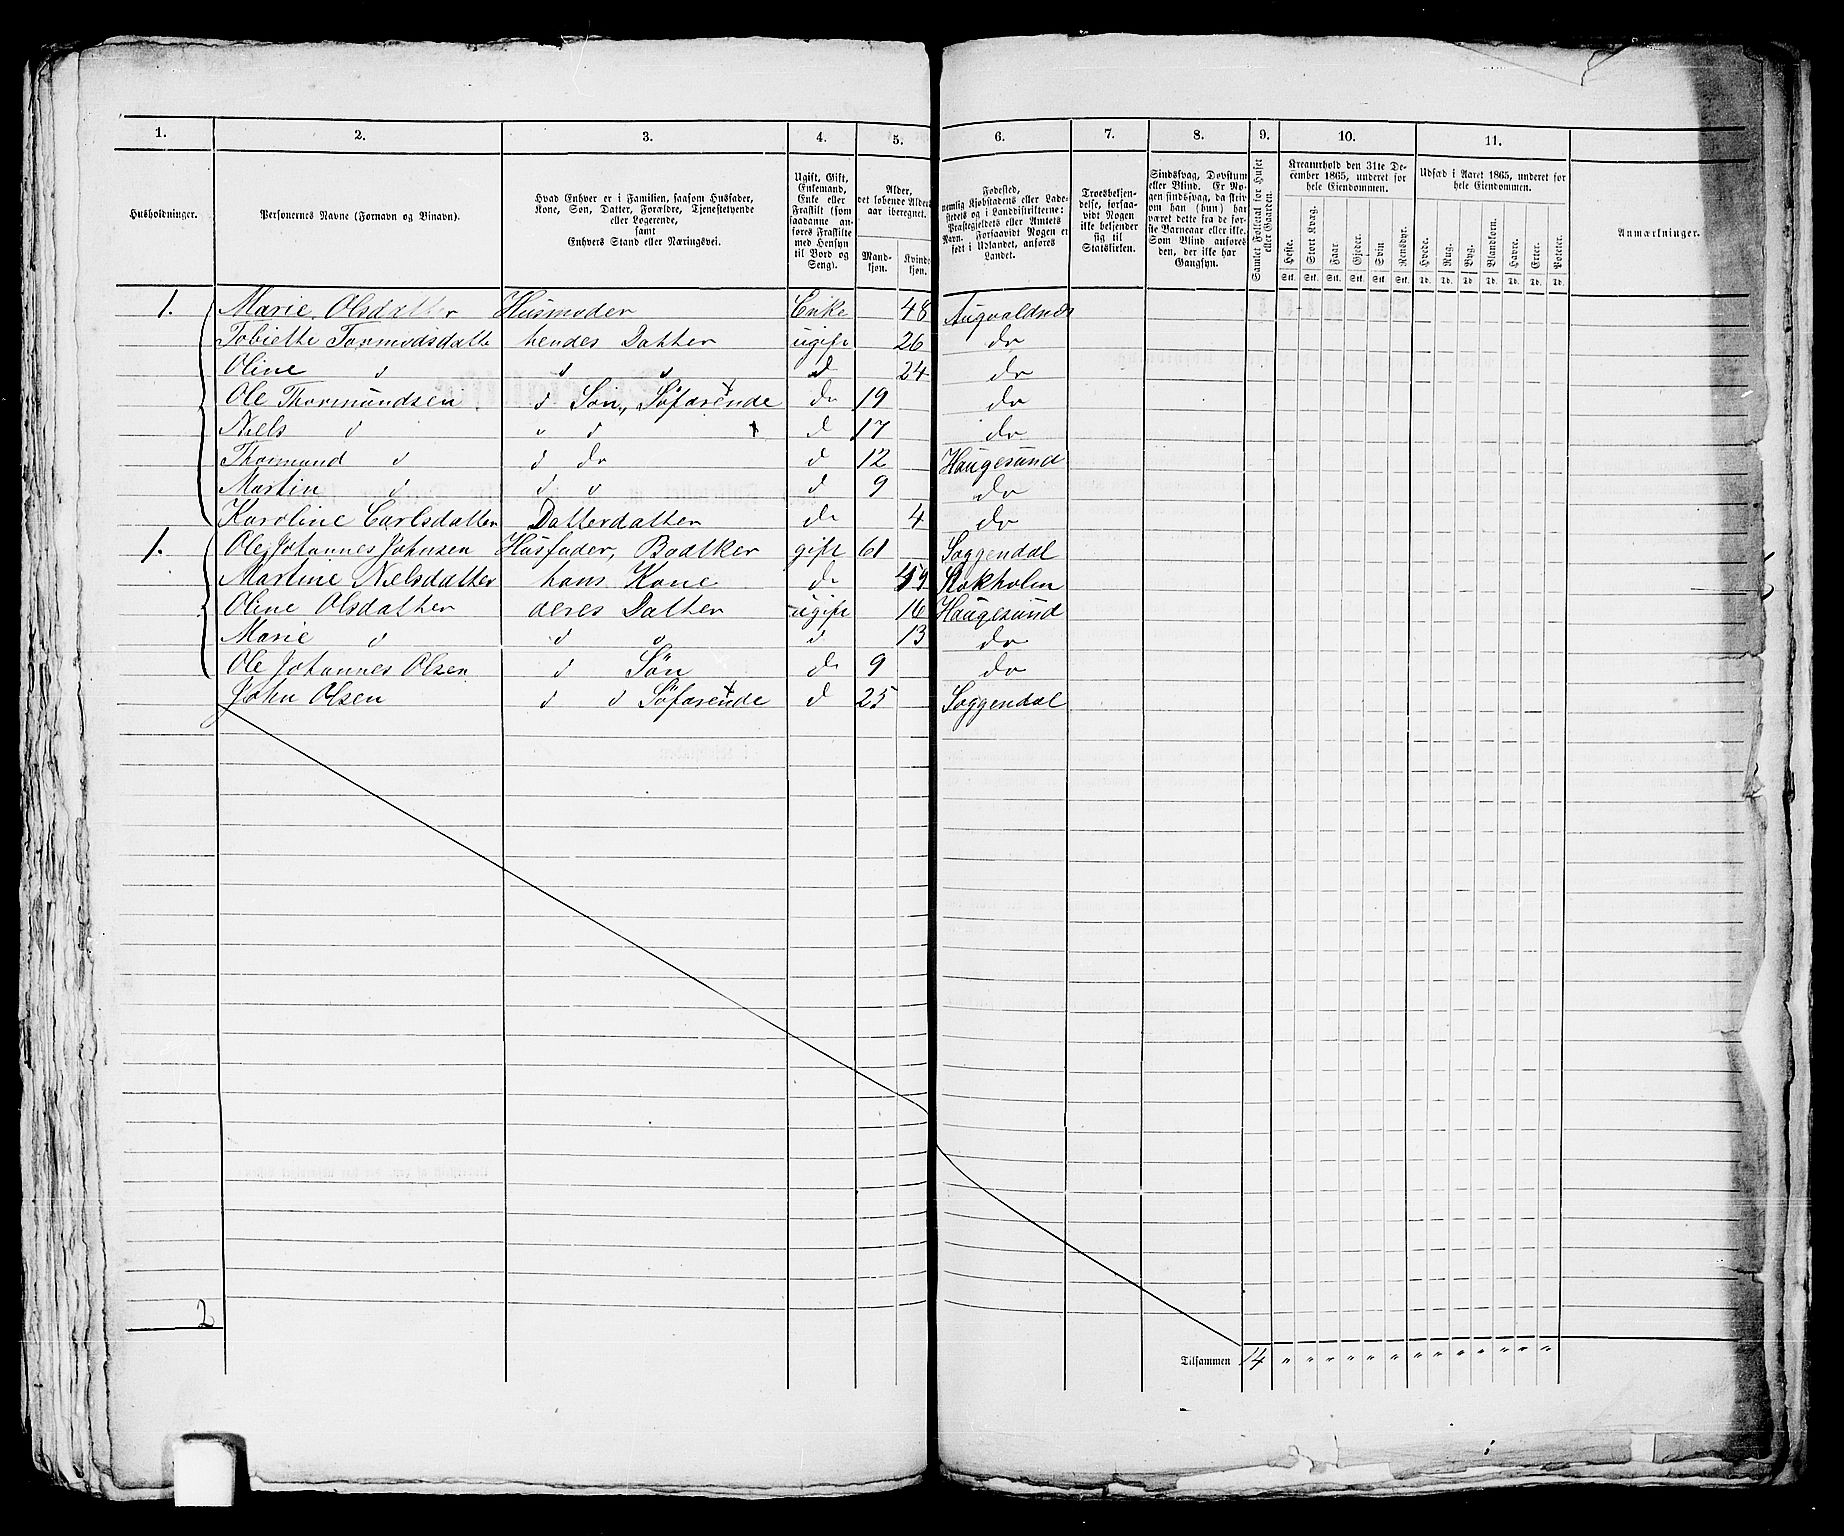 1. 2. 3. 4. 5. 6. 7. 8. 9. 10. 11.
Husholdninger.
Personernes Navne (Fornavn og Binavn).
Hvad Enhver er i Familien, saasom Husfader, Kone, Søn, Datter, Forældre, Tjenestetyende eller Logerende, samt Enhvers Stand eller Næringsvei.
Ugift, Gift, Enkemand, Enke eller Fraskilt (som saadanne anføres Fraskilte med Hensyn til Bord og Seng).
Alder, det løbende Alders aar iberegnet.
Mandkjøn. Kvindekjøn.
Fødested, nemlig Kjøbstadens eller Ladestedets og i Landdistrikterne: Præstegjeldets eller Amtets Navn. Forsaavidt Nogen er født i Udlandet, anføres Landet.
Troesbekjendelse, forsaavidt Nogen ikke bekjender sig til Statskirken.
Sindssvag, Døvstum eller Blind. Er Nogen sindssvag, da skrives om han (hun) har været dette fra de første Barneaar eller ikke. Som Blind anføres den, der ikke har Gangsyn.
Samlet Folketal for Huset eller Gaarden.
Kreaturhold den 31te December 1865, underet for hele Eiendommen.
Heste. Stort Kvæg. Faar. Gjeder. Svin. Rensdyr.
Stk. Stk. Stk. Stk. Stk. Stk.
Udsæd i Aaret 1865, underet for hele Eiendommen.
Hvede. Rug. Byg. Blandkorn. Havre. Erter. Poteter.
Td. Td. Td. Td. Td. Td. Td.
Anmærkninger.
1. Marie Olsdatter Husmoder Enke 48 Augvaldnæs
Tobiette Tormodsdatte hendes Datter ugift 26 do
Oline d d d d 24 do
Ole Thormundsen d Søn, Söfarende do 19 do
Niels d " d d 17 do
Thormund d d do d 12 Haugesund
Martin d d d d 9 do
Karoline Carlsdatter Datterdatter do 4 do
1. Ole Johannes Johnsen Husfader, Bødtker gift 61 Soggendal
Martine Nielsdatter hans Kone do 59 Stokholm
Oline Olsdatter deres Datter ugift 16 Haugesund
Marie d d d d 13 do
Ole Johannes Olsen d Søn do 9 do
John Olsen d d Söfarende d 25 Soggendal
2
Tilsammen 14 " " " " " " " " " " " " "